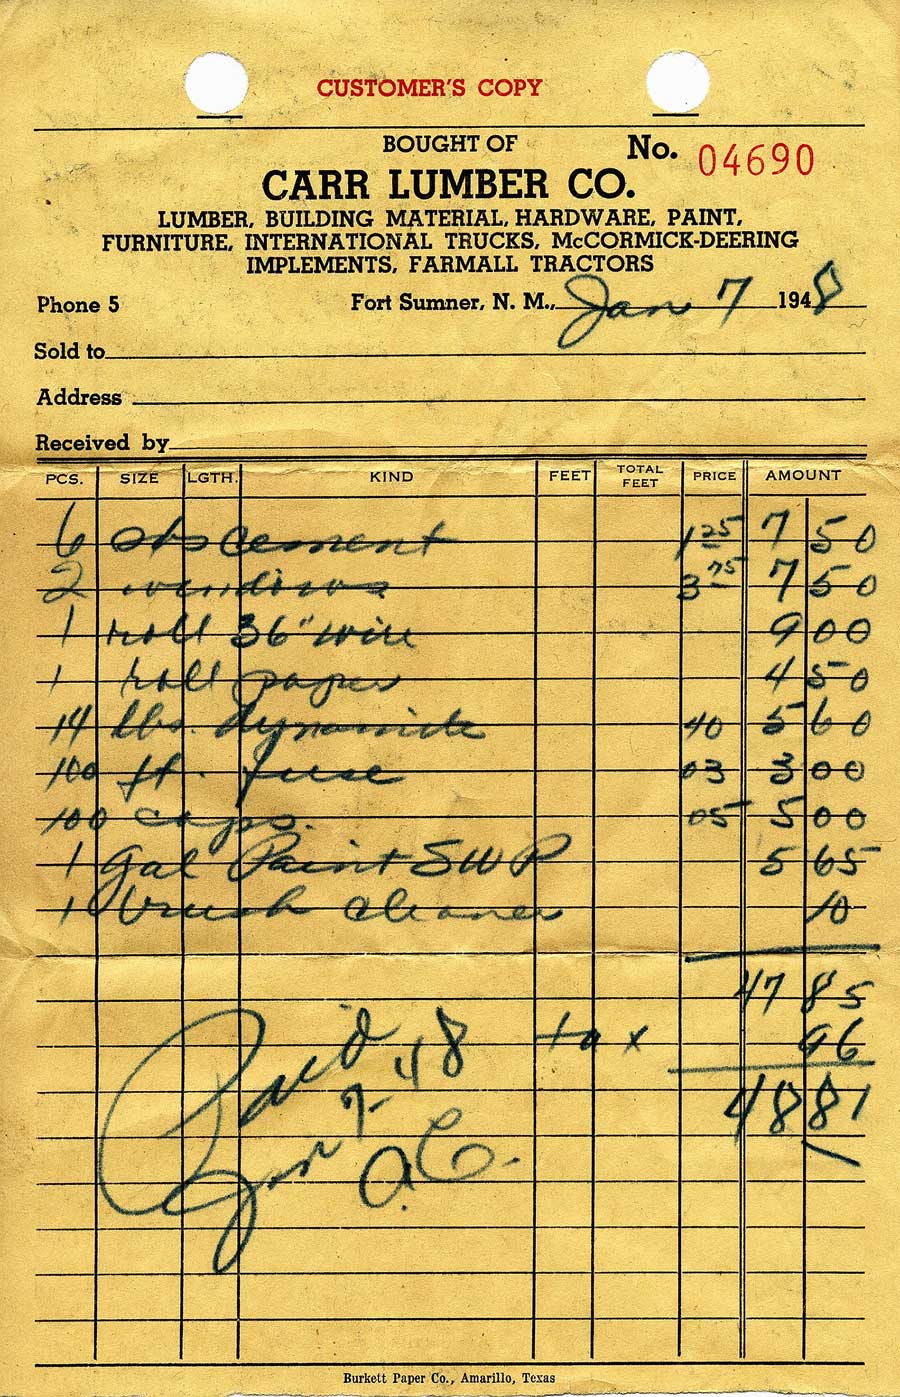 CUSTOMER'S COPY
BOUGHT OF
No. 04690
CARR LUMBER CO.
LUMBER, BUILDING MATERIAL, HARDWARE, PAINT,
FURNITURE, INTERNATIONAL TRUCKS, McCORMICK-DEERING
IMPLEMENTS, FARMALL TRACTORS
Phone 5 Fort Sumner, N. M., Jan 7 1948
Sold to
Address
Received by
PCS. SIZE LGTH. KIND FEET TOTAL FEET PRICE AMOUNT
6 sks cement 1 25 7 50
2 windows 3 75 7 50
1 roll 36" wire 9 00
1 roll paper 4 50
14 lbs. dynamite 40 5 60
100 ft. fuse 03 3 00
100 caps. 05 5 00
1 gal Paint SWP 5 65
1 brush cleaner 10
47 85
tax 96
48 81
Paid
Jan 7-48
A.C.
Burkett Paper Co., Amarillo, Texas